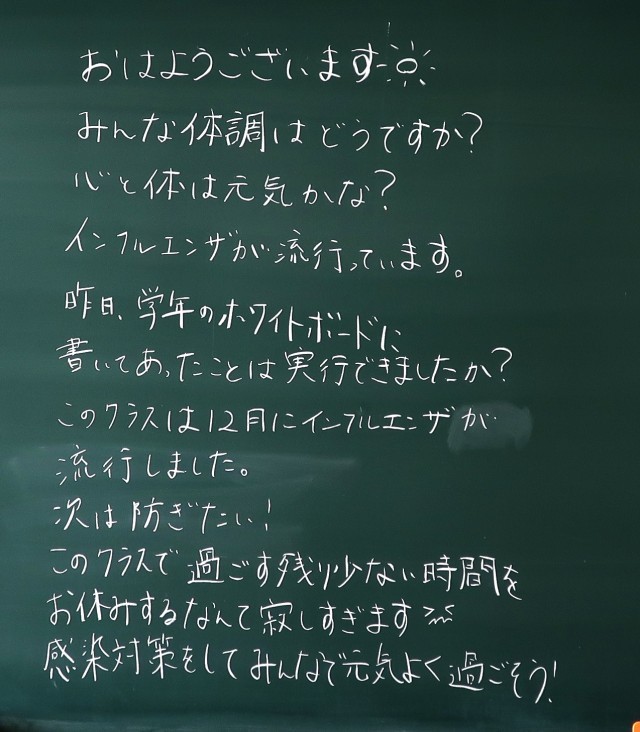 おはようございます
みんな体調はどうですか?
心と体は元気かな?
インフルエンザが流行っています。
昨日、学年のホワイトボードに
書いてあったことは実行できましたか?
このクラスは12月にインフルエンザが
流行しました。
次は防ぎたい!
このクラスで過ごす残り少ない時間を
お休みするなんて寂しすぎます
感染対策をしてみんなで元気よく過ごそう!